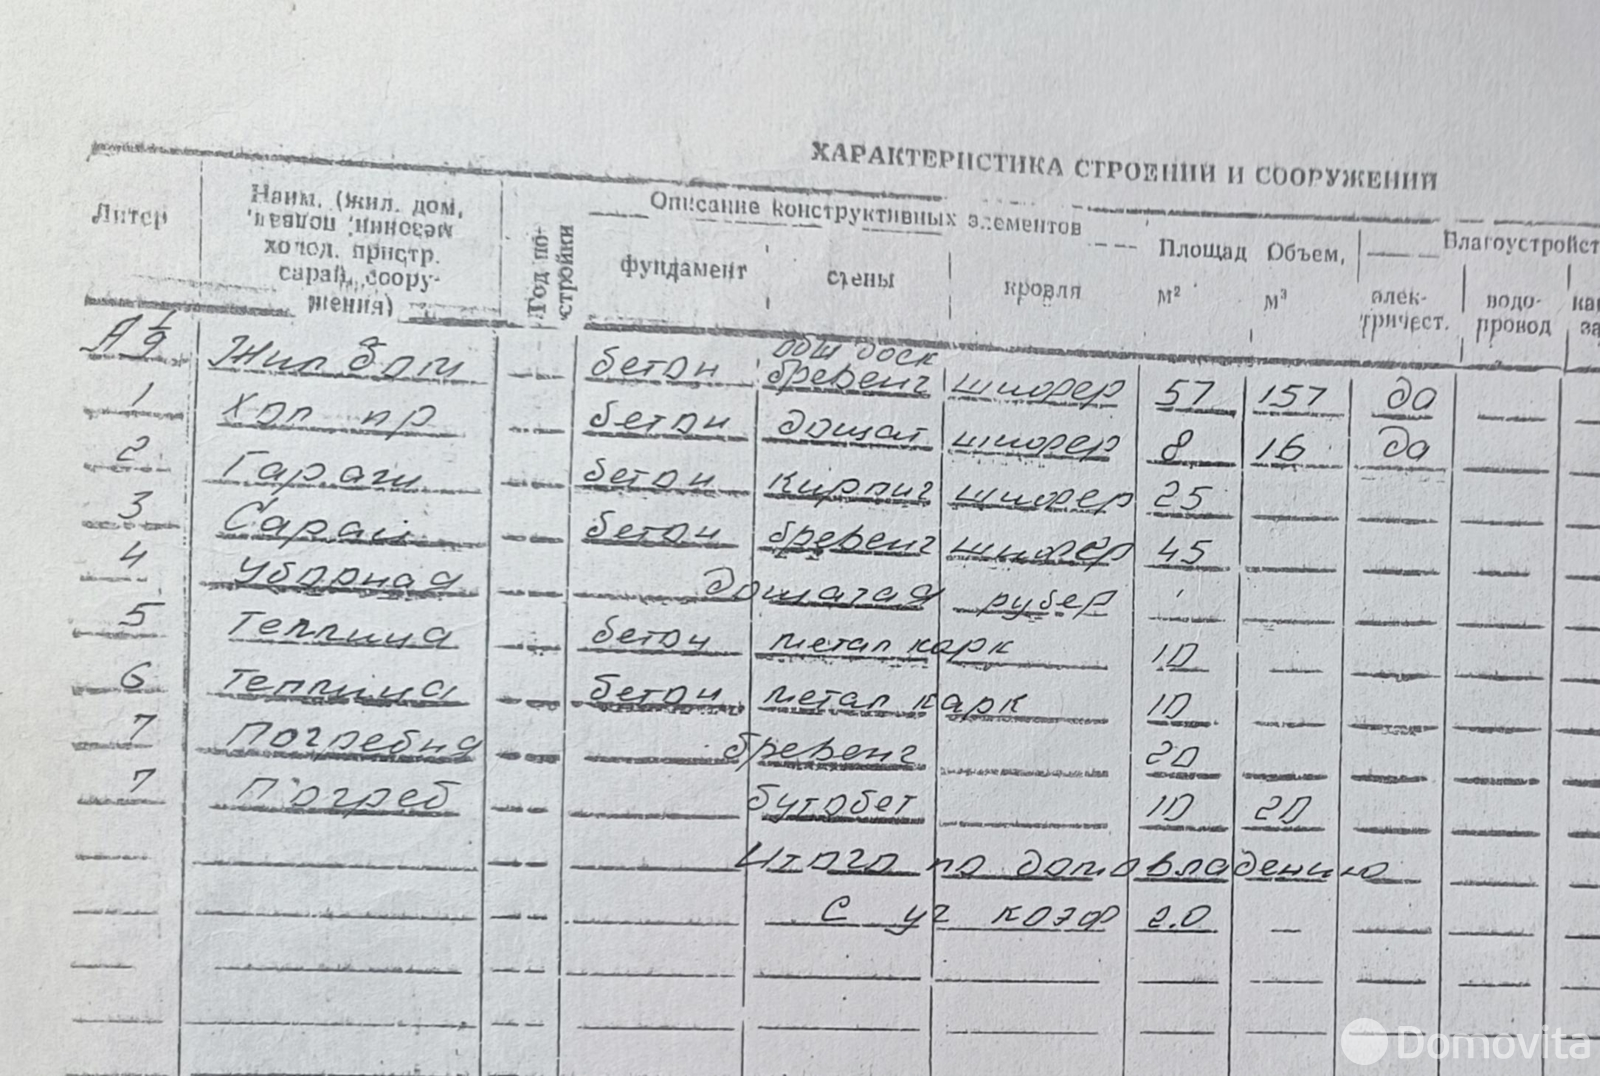 ХАРАКТЕРИСТИКА СТРОЕНИЙ И СООРУЖЕНИЙ
Литер
Наим. (жил. дом,
мезонин, подвал,
холод. пристр.
сарай, соору-
жения)
Год по-
стройки
Описание конструктивных элементов
фундамент стены кровля
Площад
м²
Объем,
м³
Благоустройст
элек-
тричест.
водо-
провод
ка
за
А 1/9 Жил дом бетон обш доск бревенч шифер 57 157 да
1 Хол пр бетон дощат шифер 8 16 да
2 Гараж бетон кирпич шифер 25
3 Сарай бетон бревенч шифер 45
4 Уборная дощатая рубер
5 Теплица бетон метал карк 10
6 Теплица бетон метал карк 10
7 Погребня бревенч 20
7 Погреб бутобет 10 20
Итого по домовладению
с уч коэф 2.0
Domovita